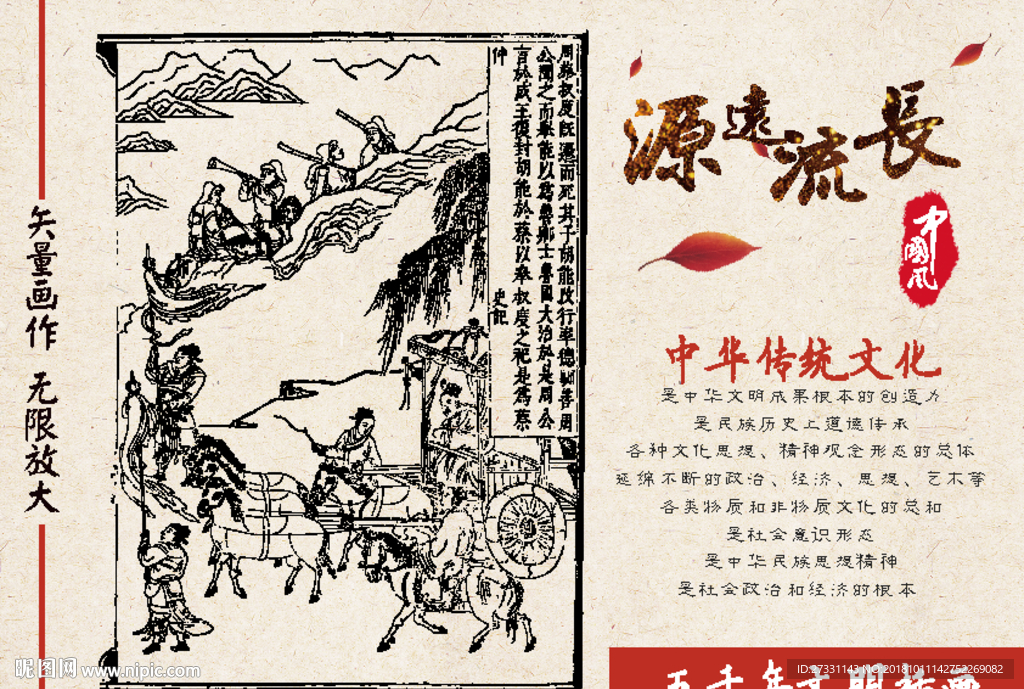 矢量画作 无限放大
周蔡叔度既遷而死其子胡能改行率德馴善周
公聞之而舉能以為魯卿士魯國大治於是周公
言於成王復封胡能於蔡以奉叔度之祀是為蔡
仲 史記
源遠流長
中國风
中华传统文化
是中华文明成果根本的创造力
是民族历史上道德传承
各种文化思想、精神观念形态的总体
延绵不断的政治、经济、思想、艺术等
各类物质和非物质文化的总和
是社会意识形态
是中华民族思想精神
是社会政治和经济的根本
五千年文明
昵图网 www.nipic.com
ID:37331143 NO:20181011142752269082